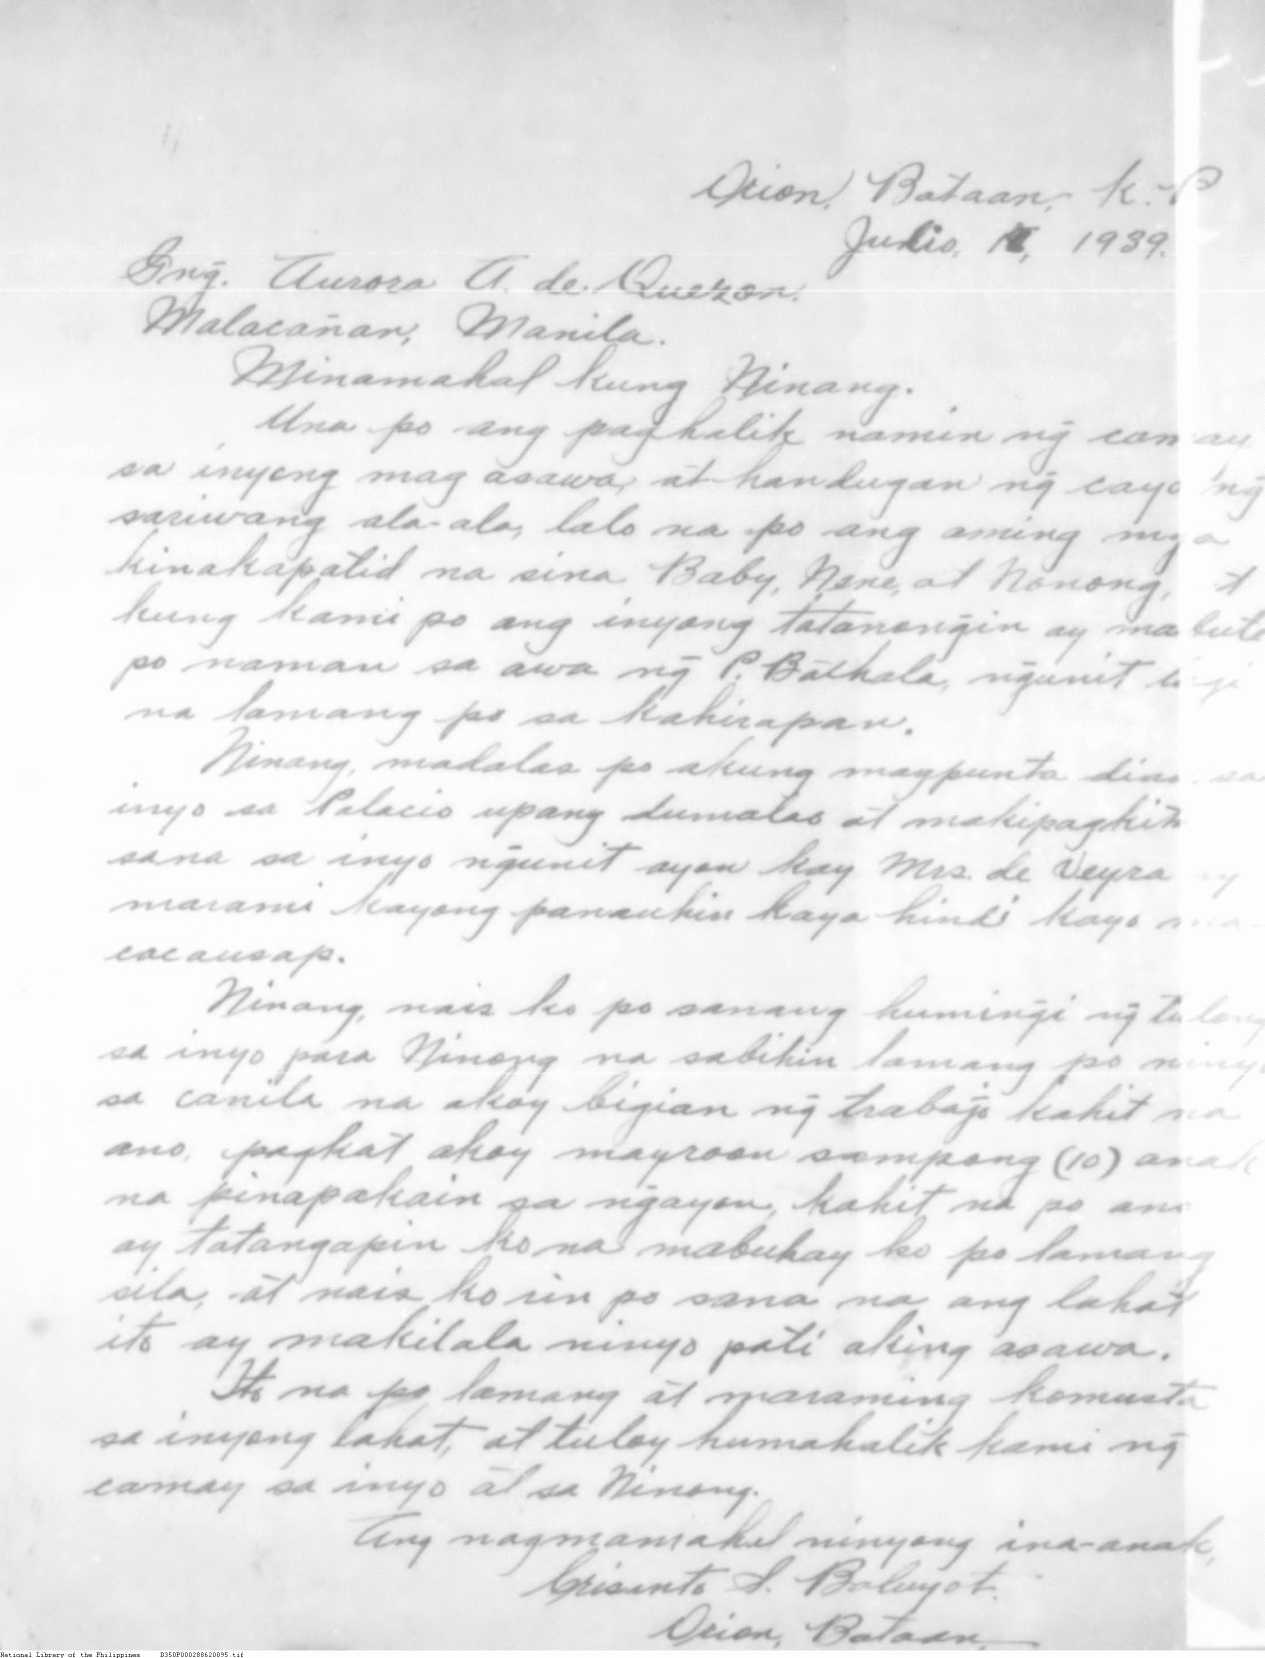 Orion, Bataan, K. P
Julio, 1939.
Gñg. Aurora A. de Quezon.
Malacañan, Manila.
Minamahal kung Ninang.
Una po ang paghalik namin ng̃ camay
sa inyong mag asawa, at handugan ng̃ cayo ng̃
sariwang ala-ala, lalo na po ang aming mga
kinakapatid na sina Baby, Nene, at Nonong,
kung kami po ang inyong tatanong̃in ay mabute
po naman sa awa ng̃ P. Bathala, ng̃unit
na lamang po sa kahirapan.
Ninang, madalas po akung magpunta dian sa
inyo sa Palacio upang dumalao at makipagkita
sana sa inyo ng̃unit ayon kay Mrs. de Veyra ay
marami kayong panauhin kaya hindi kayo ma-
cacausap.
Ninang, nais ko po sanang huming̃i ng̃ tulong
sa inyo para Ninong na sabihin lamang po ninyo
sa canila na akoy bigian ng̃ trabajo kahit na
ano, pagkat akoy mayroon sampong (10) anak
na pinapakain sa ng̃ayon, kahit na po ano
ay tatangapin ko na mabuhay ko po lamang
sila, at nais ko rin po sana na ang lahat
ito ay makilala ninyo pati aking asawa.
Ito na po lamang at maraming komusta
sa inyong lahat, at tuloy humahalik kami ng̃
camay sa inyo at sa Ninong.
Ang nagmamahal ninyong ina-anak,
Crisanto S. Baluyot.
Orion, Bataan.
National Library of the Philippines D350P000288620095.tif